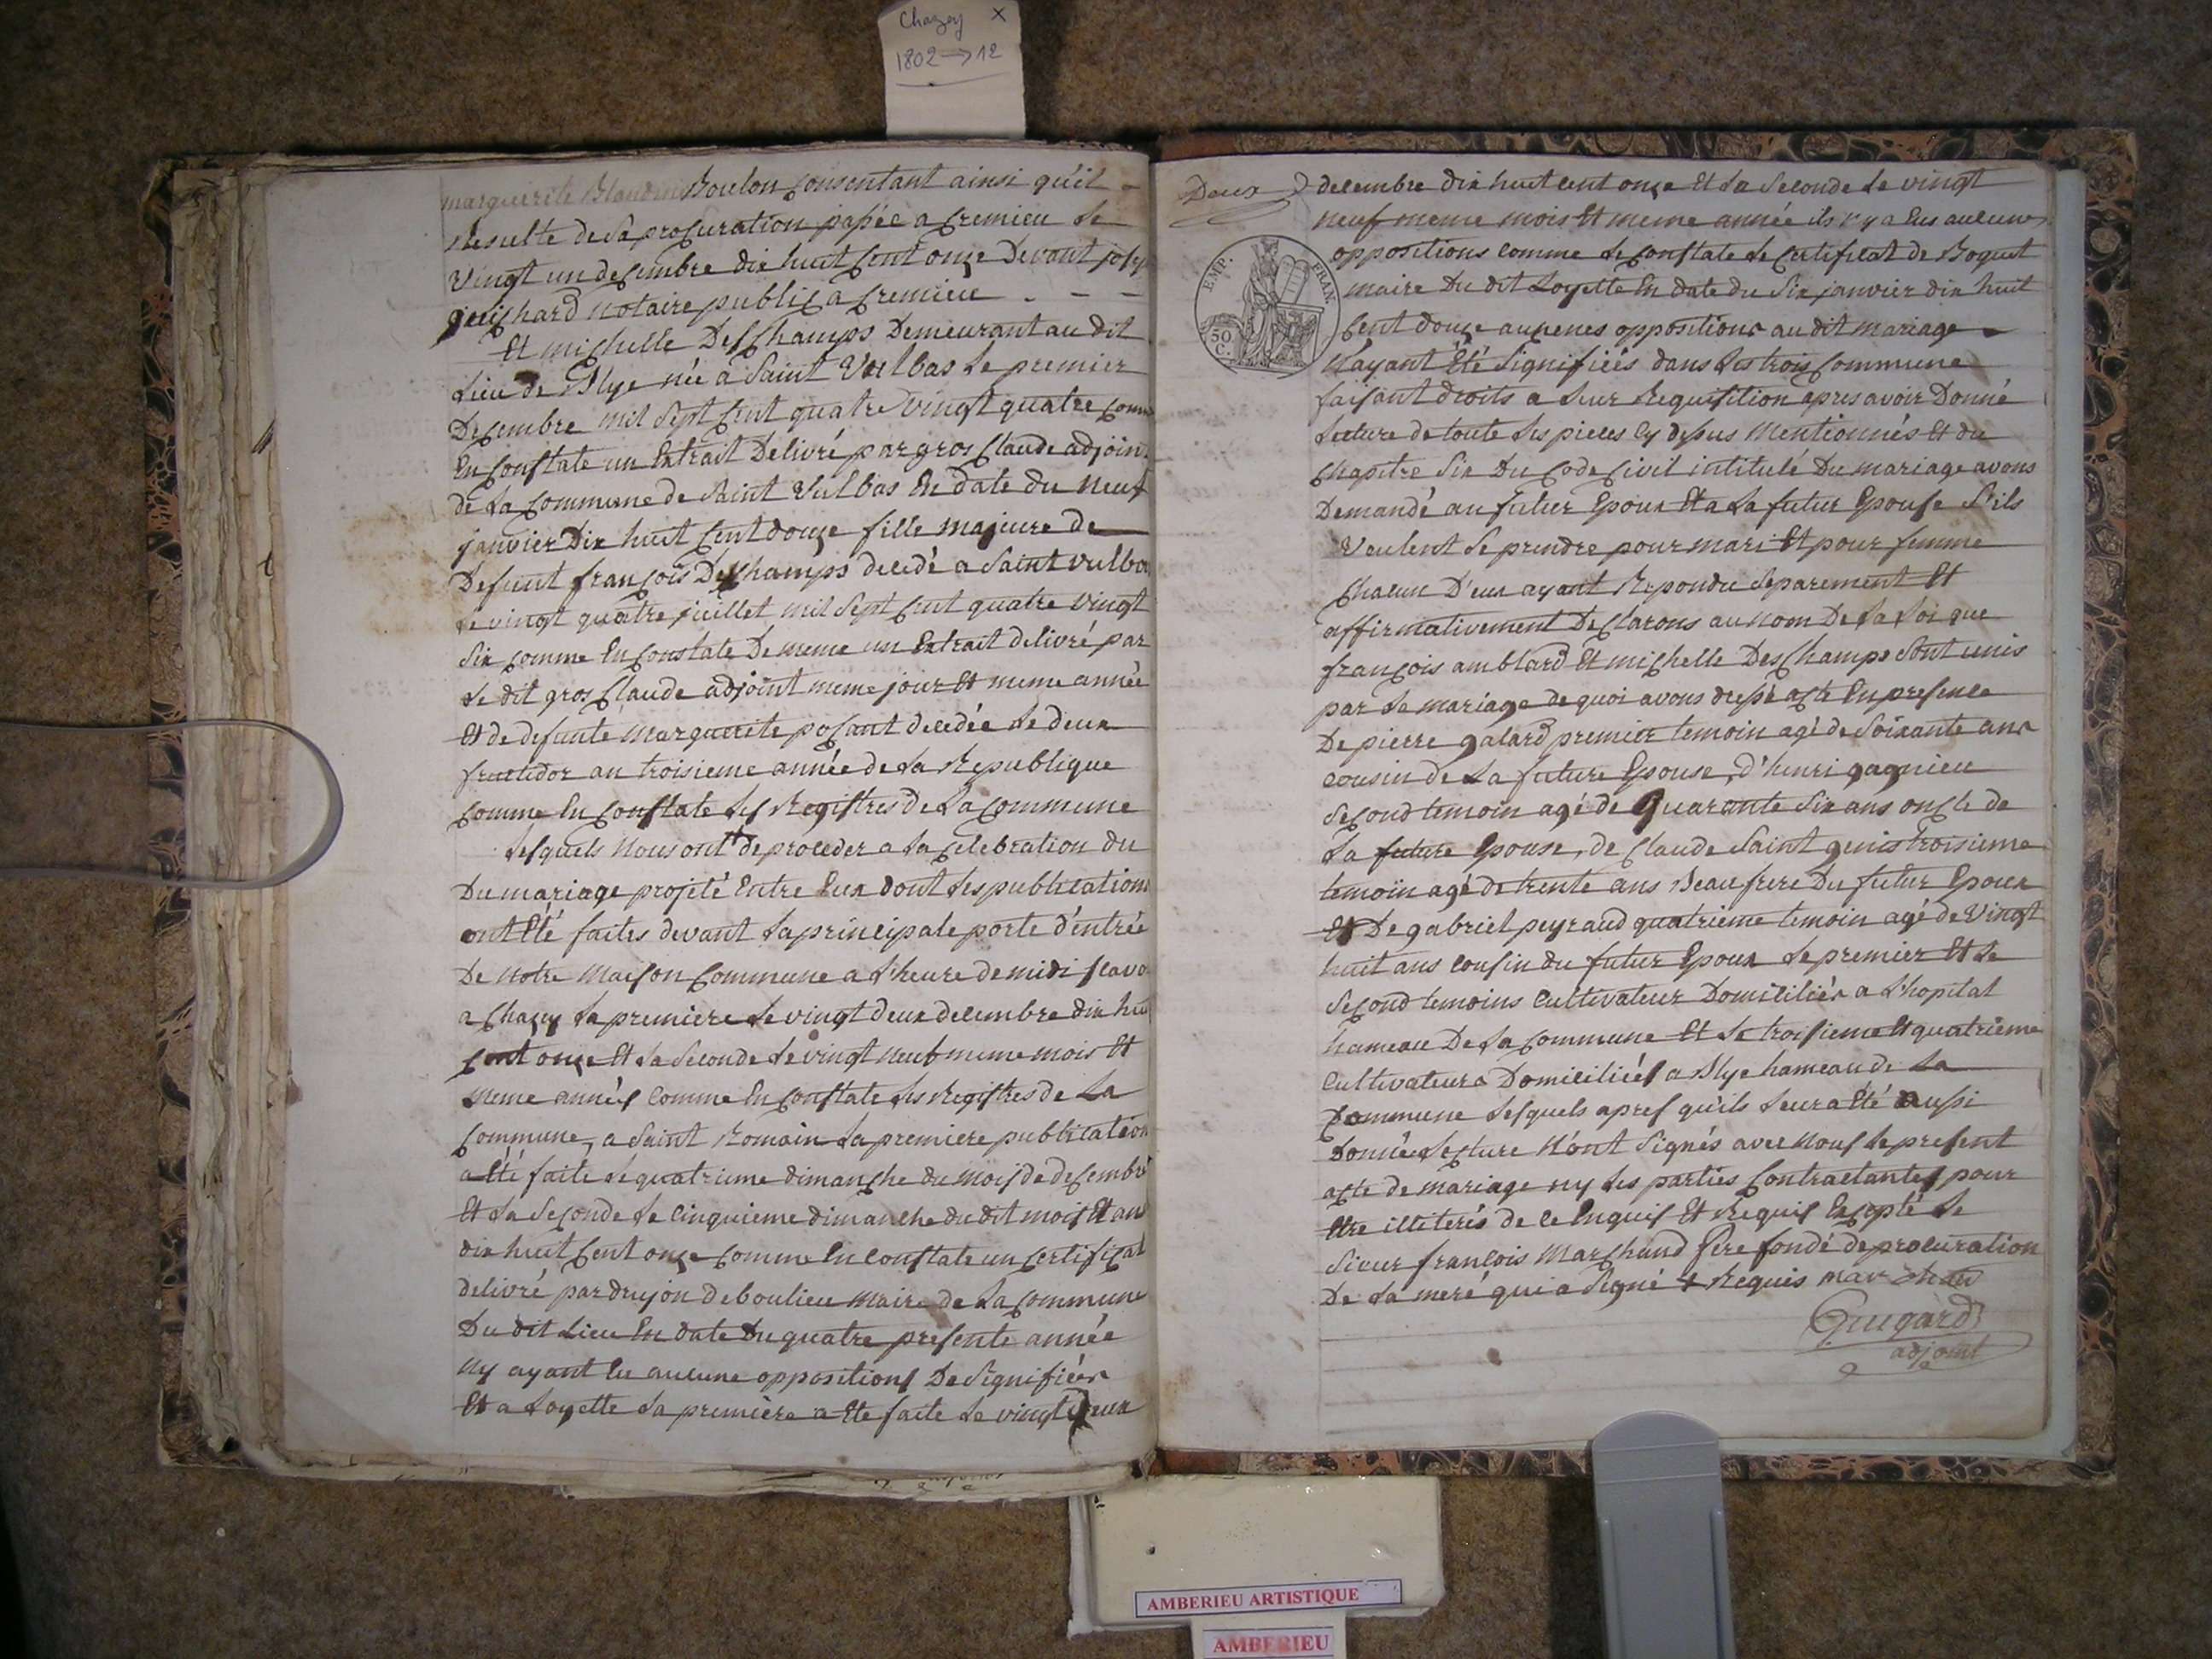 Chazey X
1802 → 12
marguerite Blandin Boulon Consentant ainsi qu'il
resulte de sa procuration passée a Cremieu le
vingt un decembre dix huit Cent onze Devant josep
guichard notaire public a Cremieu - - -
Et michelle DesChamps Demeurant au dit
Lieu de Blye née a Saint Vulbas le premier
Decembre mil Sept Cent quatre vingt quatre Comm
En Constate un Extrait Delivré par gros Claude adjoint
de La Commune de Saint Vulbas En date du Neuf
janvier Dix huit Cent douze fille majeure de
Defunt françois DesChamps decedé a Saint vulba
le vingt quatre juillet mil Sept Cent quatre vingt
Six Comme En Constate De meme un Extrait delivré par
le dit gros Claude adjoint meme jour Et meme année
Et de defunte Marguerite posant decedée le deux
fructidor an troisieme année de La Republique
Comme En Constate les Registres de La Commune
Lesquels Nous ont de proceder a La Celebration du
Du mariage projeté Entre Eux dont les publications
ont Eté faites devant La principale porte d'entrée
De notre Maison Commune a L'heure de midi scavo
a Chazey La premiere le vingt deux decembre dix hui
Cent onze Et La Seconde le vingt neuf meme mois Et
meme années Comme En Constate les Registres de La
Commune, a Saint Romain La premiere publication
a Eté faite le quatrieme dimanche du mois de decembre
Et La Seconde le Cinquieme dimanche du dit mois Et an
dix huit Cent onze Comme En Constate un Certificat
delivré par drujon de boulieu Maire de La Commune
Du dit Lieu En date Du quatre presente année
Ny ayant Eu aucune oppositions De Signifiées
Et a Loyette La premiere a Ete faite Le vingt Deux
Deux
EMP. FRAN.
50 C.
decembre dix huit cent onze Et La Seconde Le vingt
neuf meme mois Et meme année ils n'y a Eus aucunes
oppositions Comme Le Constate Le Certificat de Boquet
maire Du dit Loyette En date du Six janvier dix huit
Cent douze aucunes oppositions au dit mariage
N'ayant Eté Signifiées dans Les trois Commune
faisant droits a Leur Requisition apres avoir Donné
Lecture de toute Les pieces Cy dessus Mentionnés Et du
Chapitre Six Du Code Civil intitulé Du mariage avons
Demandé au futur Epoux Et a La futur Epouse S'ils
Veulent Se prendre pour mari Et pour femme
Chacun D'eux ayant Repondu Separement Et
affirmativement DeClarons au Nom De La Loi que
françois amblard Et michelle DesChamps Sont unis
par Le mariage de quoi avons dressé acte En presence
De pierre galard premier temoin agé de Soixante ans
cousin de La future Epouse, d'henri gagnieu
Second temoin agé de Quarante Six ans oncle de
La future Epouse, de Claude Saint genis troisieme
temoin agé de trente ans Beau frere Du futur Epoux
Et De gabriel peyraud quatrieme temoin agé de Vingt
huit ans cousin du futur Epoux Le premier Et Le
Second temoins Cultivateur Domiciliés a L'hopital
hameau De La Commune Et Le troisieme Et quatrieme
Cultivateurs Domiciliés a Blye hameau de La
Commune Lesquels apres qu'ils Leur a Eté aussi
Donnée Lecture N'ont Signés avec Nous Le present
acte de mariage ny Les parties Contractantes pour
Etre illiterés de Ce Enquis Et Requis Excepté Le
Sieur françois Marchand Pere fondé de procuration
De La mere qui a Signé & Requis marchan
Grugard
adjoint
AMBERIEU ARTISTIQUE
AMBERIEU